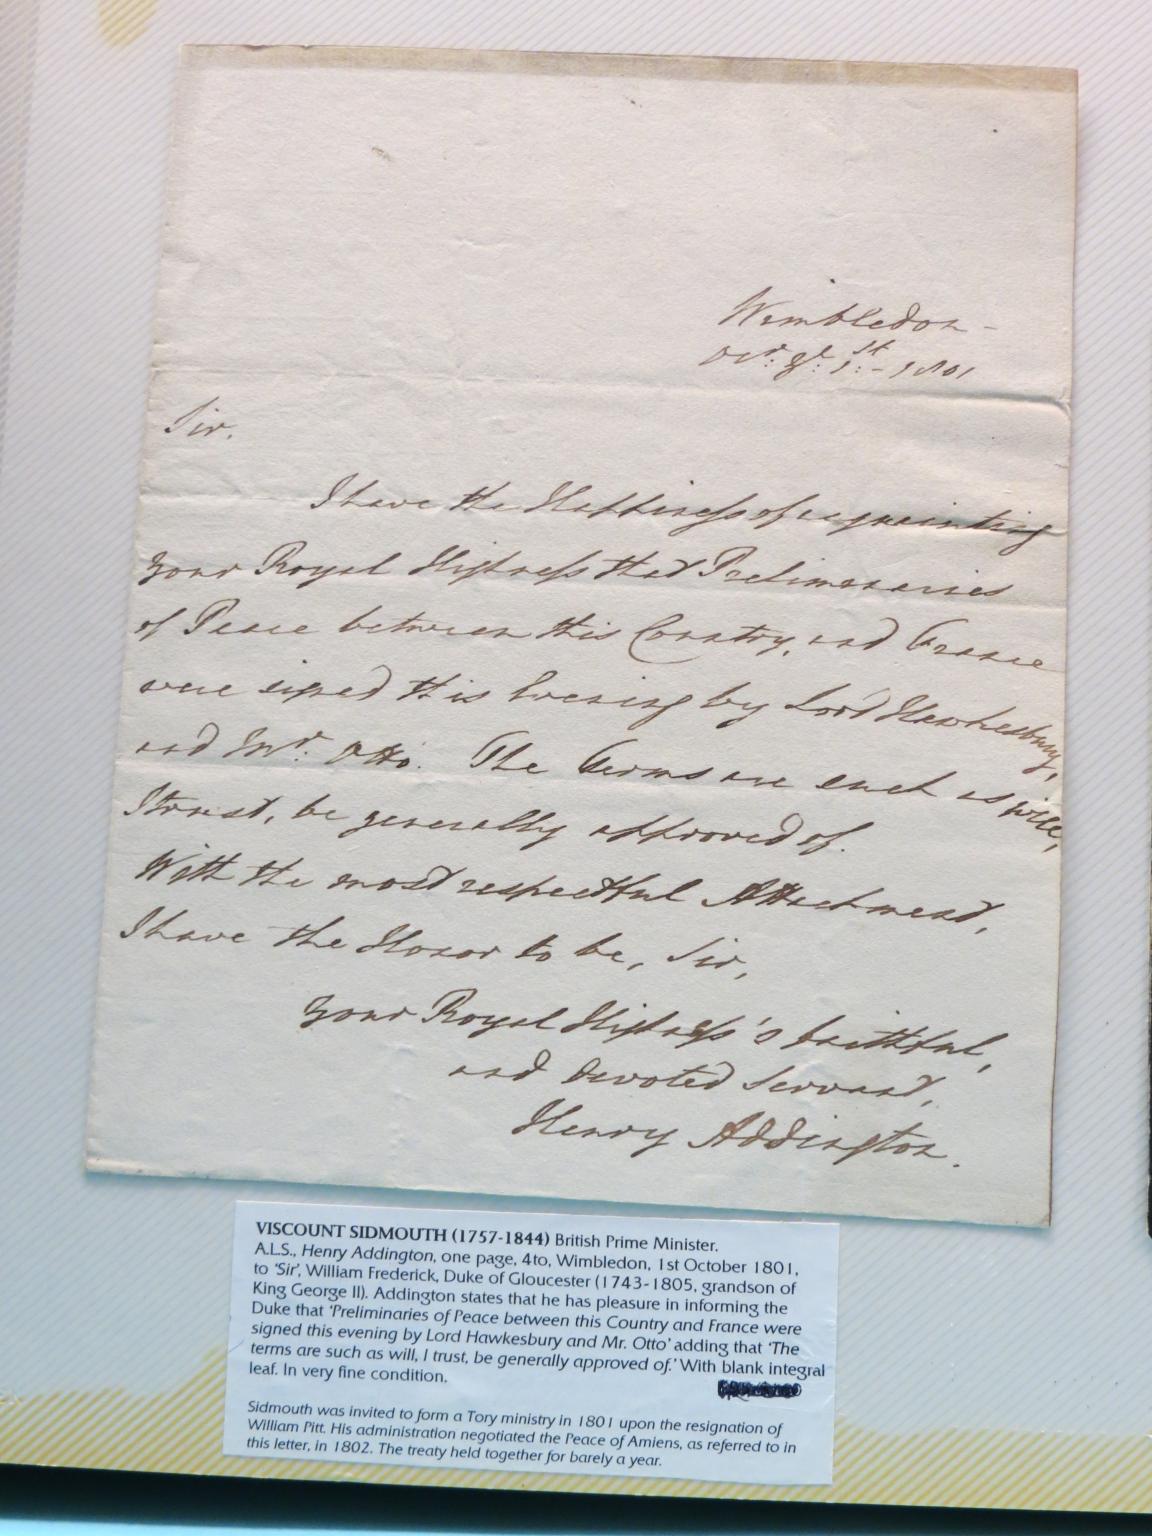 Wimbledon -
1st - 1801
Sir.
I have the Happiness of acquainting
your Royal Highness that Preliminaries
of Peace between this Country, and France
were signed this Evening by Lord Hawkesbury,
and Mr. Otto. The Terms are such as will,
I trust, be generally approved of.
With the most respectful Attachment,
I have the Honor to be, Sir,
your Royal Highness's faithful,
and devoted Servant,
Henry Addington.
VISCOUNT SIDMOUTH (1757-1844) British Prime Minister.
A.L.S., Henry Addington, one page, 4to, Wimbledon, 1st October 1801,
to 'Sir', William Frederick, Duke of Gloucester (1743-1805, grandson of
King George II). Addington states that he has pleasure in informing the
Duke that 'Preliminaries of Peace between this Country and France were
signed this evening by Lord Hawkesbury and Mr. Otto' adding that 'The
terms are such as will, I trust, be generally approved of.' With blank integral
leaf. In very fine condition.
Sidmouth was invited to form a Tory ministry in 1801 upon the resignation of
William Pitt. His administration negotiated the Peace of Amiens, as referred to in
this letter, in 1802. The treaty held together for barely a year.